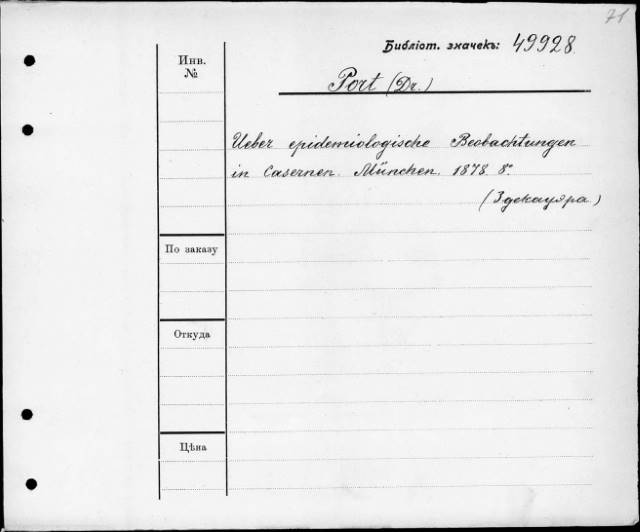 71
Библіот. значекъ: 49928
Инв.
№
Port (Dr.)
Ueber epidemiologische Beobachtungen
in Casernen. München. 1878. 8°.
(Здекауэра)
По заказу
Откуда
Цѣна